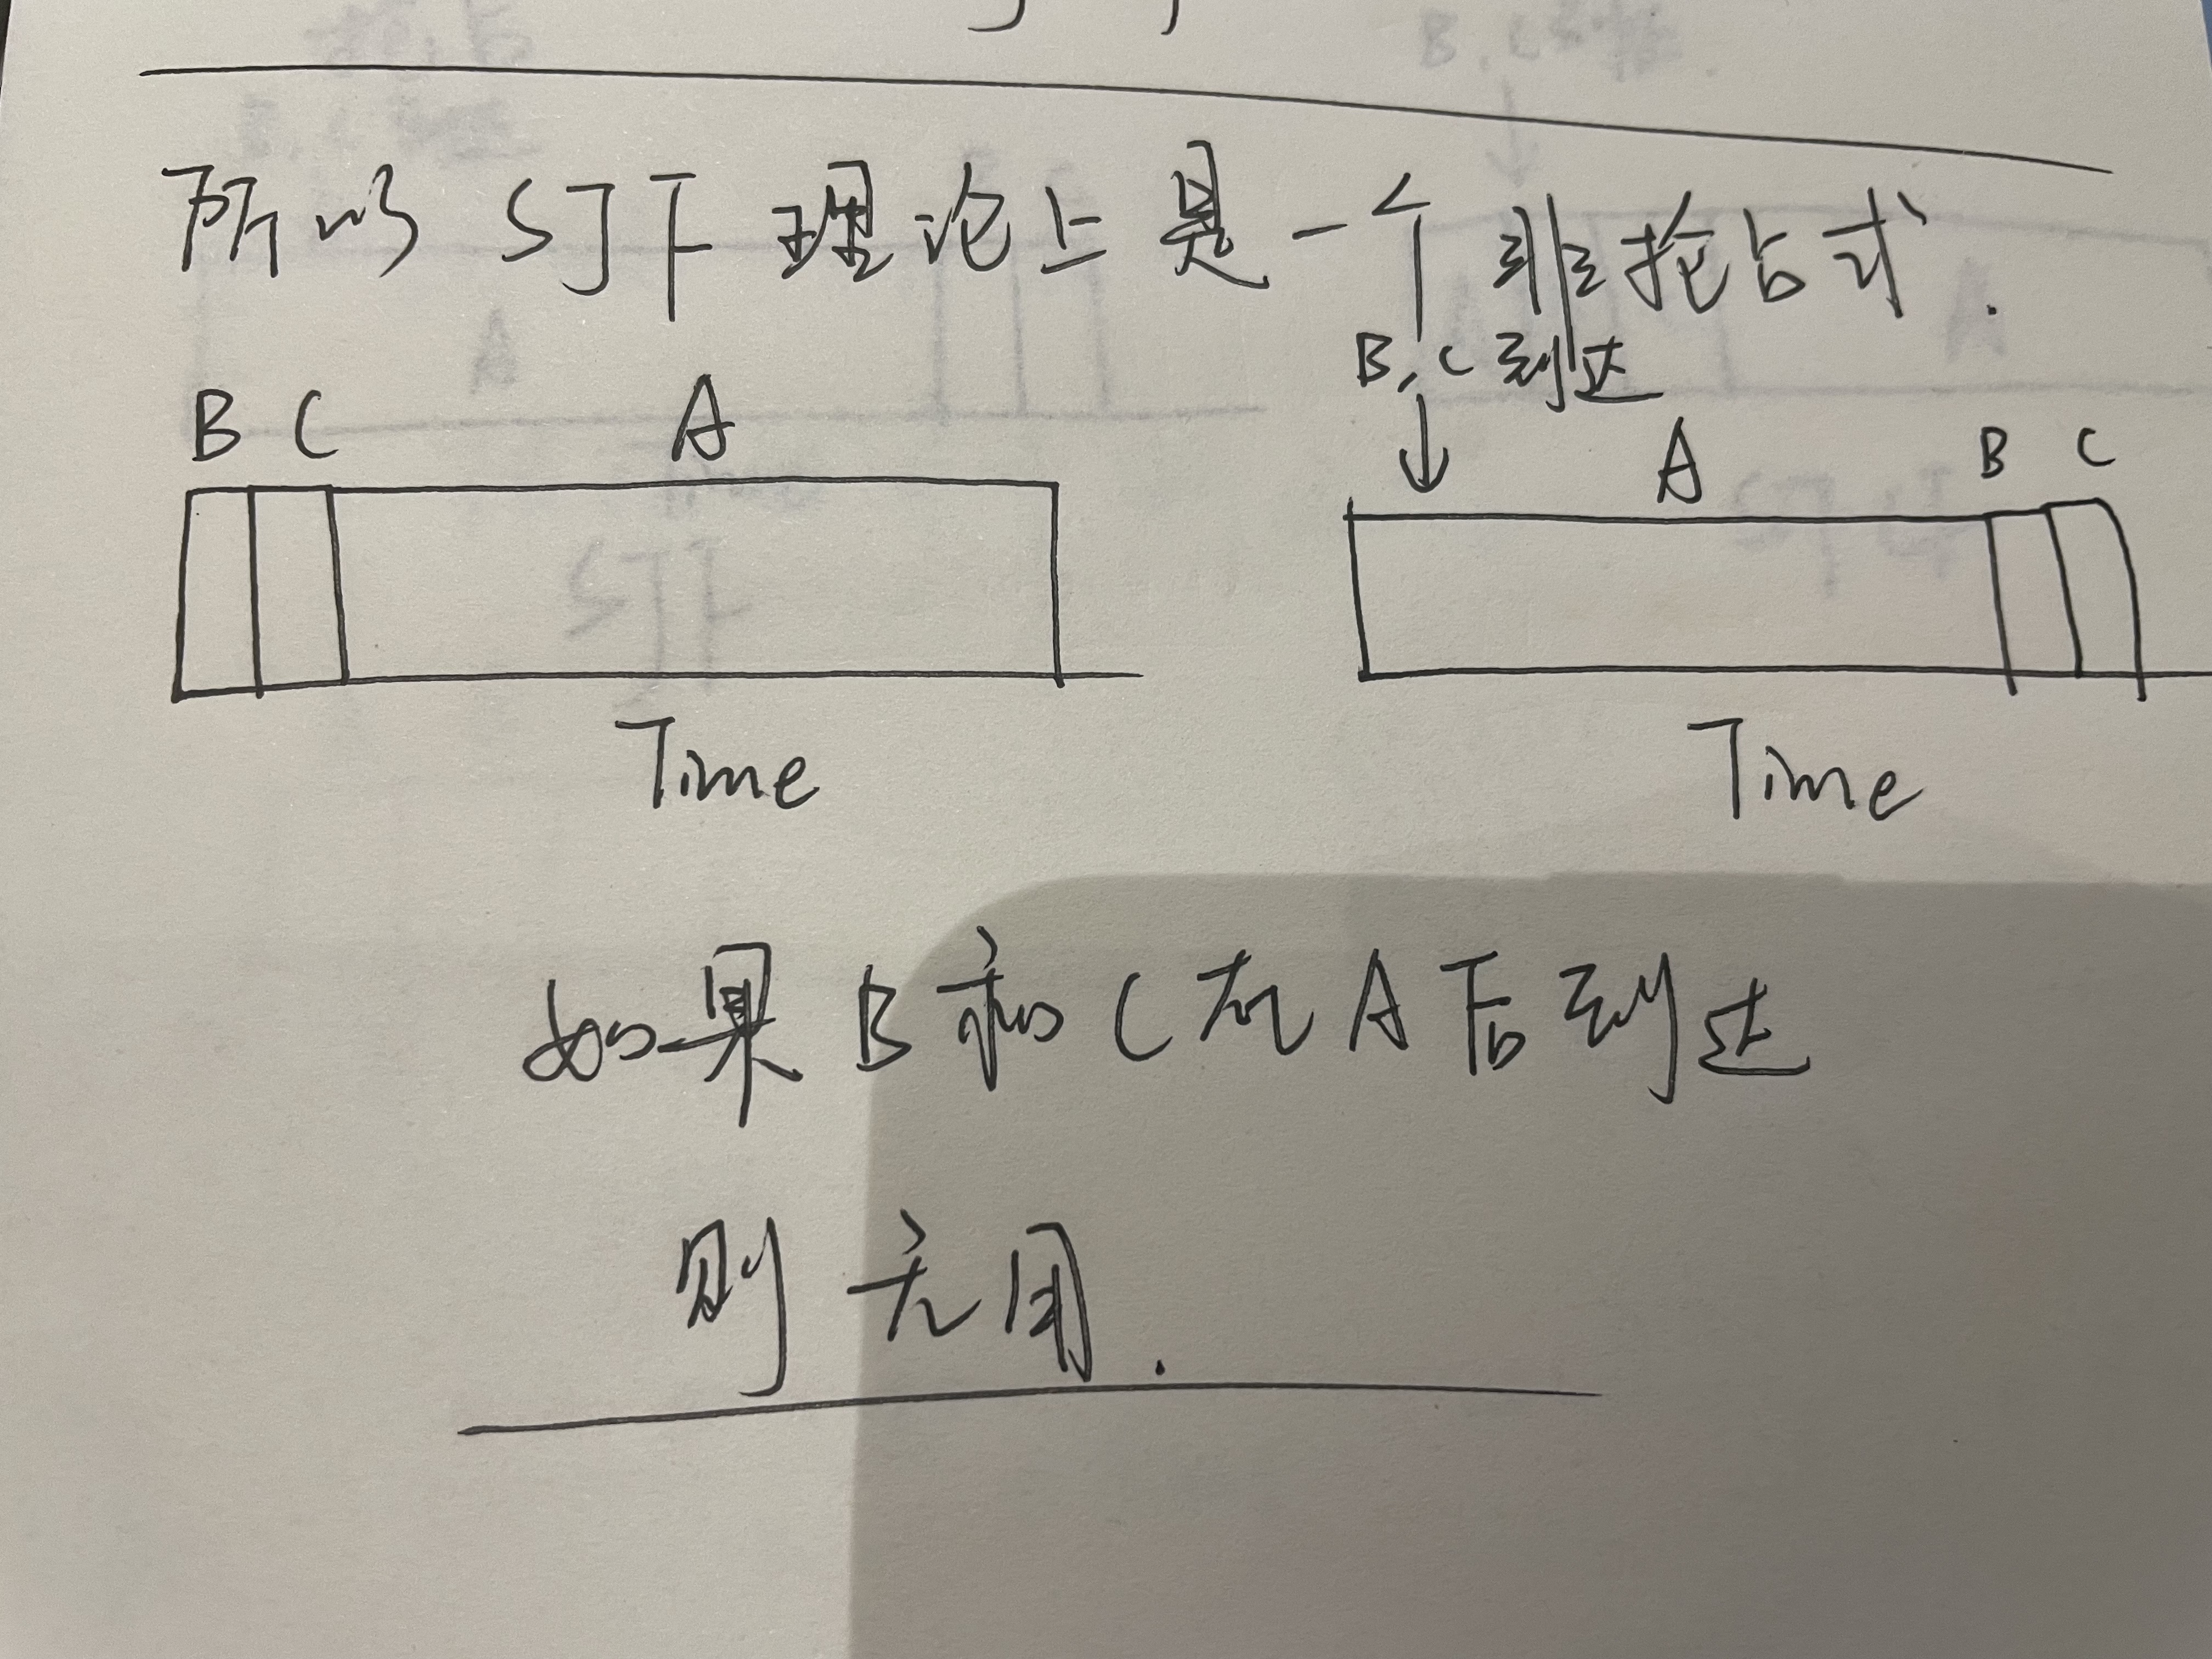 所以 SJF 理论上是一个非抢占式.
B C A
B, C 到达
A B C
Time
Time
如果 B 和 C 在 A 后到达
则无用.